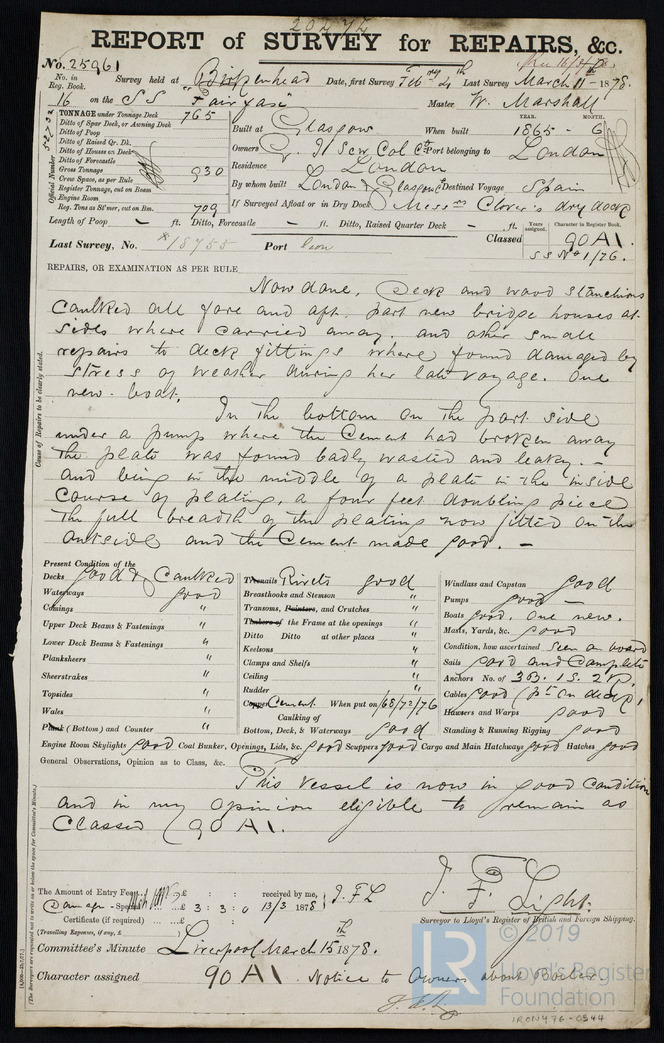 20474
REPORT of SURVEY for REPAIRS, &c.
No. 25961
No. in Reg. Book. Survey held at Birkenhead Date, first Survey Feby 4th Last Survey March 11th 1878.
16 on the S S "Fairfax" Master W. Marshall
TONNAGE under Tonnage Deck 765
Ditto of Spar Deck, or Awning Deck
Ditto of Poop
Ditto of Raised Qr. Dk.
Ditto of Houses on Deck
Ditto of Forecastle
Gross Tonnage 930
Crew Space, as per Rule
Register Tonnage, cut on Beam
Engine Room
Reg. Tons as St'mer, cut on Bm. 709
Official Number 52732
Built at Glasgow When built YEAR. 1865 MONTH. 6
Owners Col Co Port belonging to London
Residence London
By whom built London & Glasgow Destined Voyage Spain
If Surveyed Afloat or in Dry Dock Messrs Clover's dry dock
Length of Poop — ft. Ditto, Forecastle — ft. Ditto, Raised Quarter Deck — ft.
Last Survey, No. 18755 Port Classed Years assigned. Character in Register Book. 90 A1.
S S No 1/76.
REPAIRS, OR EXAMINATION AS PER RULE
Now done, Deck and wood stanchions
caulked all fore and aft. part new bridge houses at
sides where carried away. and other small
repairs to deck fittings where found damaged by
stress of weather during her late voyage. One
new boat.
In the bottom on the port side
under a pump where the Cement had broken away
the plate was found badly wasted and leaky. —
and being in the middle of a plate in the inside
course of plating, a four feet doubling piece
the full breadth of the plating now fitted on the
outside and the Cement made good. —
Cause of Repairs to be clearly stated.
Present Condition of the
Decks good & Caulked
Waterways good
Comings "
Upper Deck Beams & Fastenings "
Lower Deck Beams & Fastenings "
Planksheers "
Sheerstrakes "
Topsides "
Wales "
Plank (Bottom) and Counter "
Treenails Rivets good
Breasthooks and Stemson "
Transoms, Pointers, and Crutches "
Timbers of the Frame at the openings "
Ditto Ditto at other places "
Keelsons "
Clamps and Shelfs "
Ceiling "
Rudder "
Copper Cement When put on /68/72/76
Caulking of
Bottom, Deck, & Waterways good
Windlass and Capstan good
Pumps good —
Boats good. One new.
Masts, Yards, &c. good
Condition, how ascertained seen on board
Sails good and Complete
Anchors No. of 3B. 1S. 2K.
Cables good (pt on deck)
Hawsers and Warps good
Standing & Running Rigging good
Engine Room Skylights good Coal Bunker, Openings, Lids, &c. good Scuppers good Cargo and Main Hatchways good Hatches good
General Observations, Opinion as to Class, &c.
This Vessel is now in good Condition
and in my Opinion eligible to remain as
Classed 90 A1.
The Amount of Entry Fee... £ : : received by me,
Damage - Special £ 3 : 3 : 0 13/3 1878 J. F L
Certificate (if required) ... £ : :
(Travelling Expenses, if any, £ )
J. F. Light.
Surveyor to Lloyd's Register of British and Foreign Shipping.
Committee's Minute Liverpool March 15th 1878.
Character assigned 90 A1 Notice to Owners about Boiler.
(The Surveyors are requested not to write on or below the space for Committee's Minute.)
© 2019
LR
Lloyd's Register
Foundation
IRON476-0344